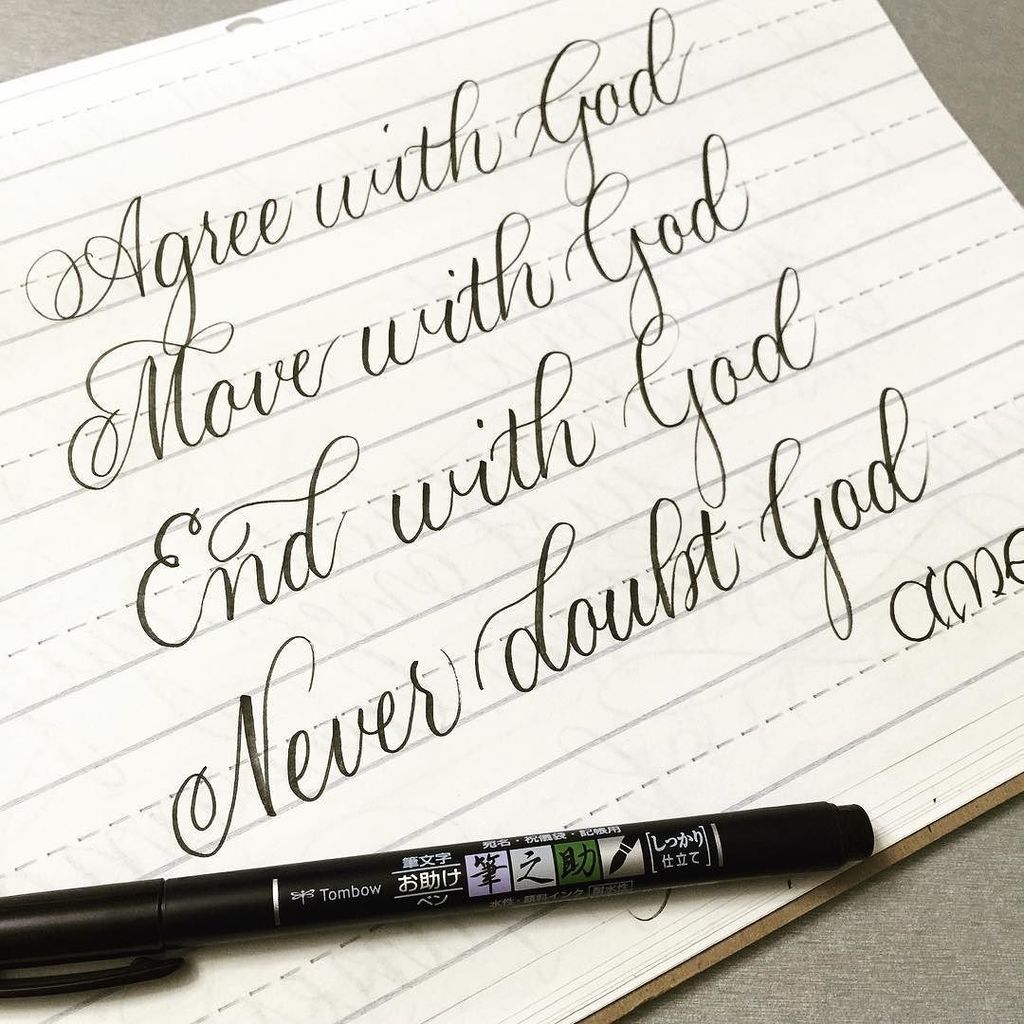 Agree with God
Move with God
End with God
Never doubt God
Tombow
筆文字
お助け
ペン
宛名・祝儀袋・記帳用
筆之助
水性・顔料インク [耐水性]
[しっかり
仕立て]